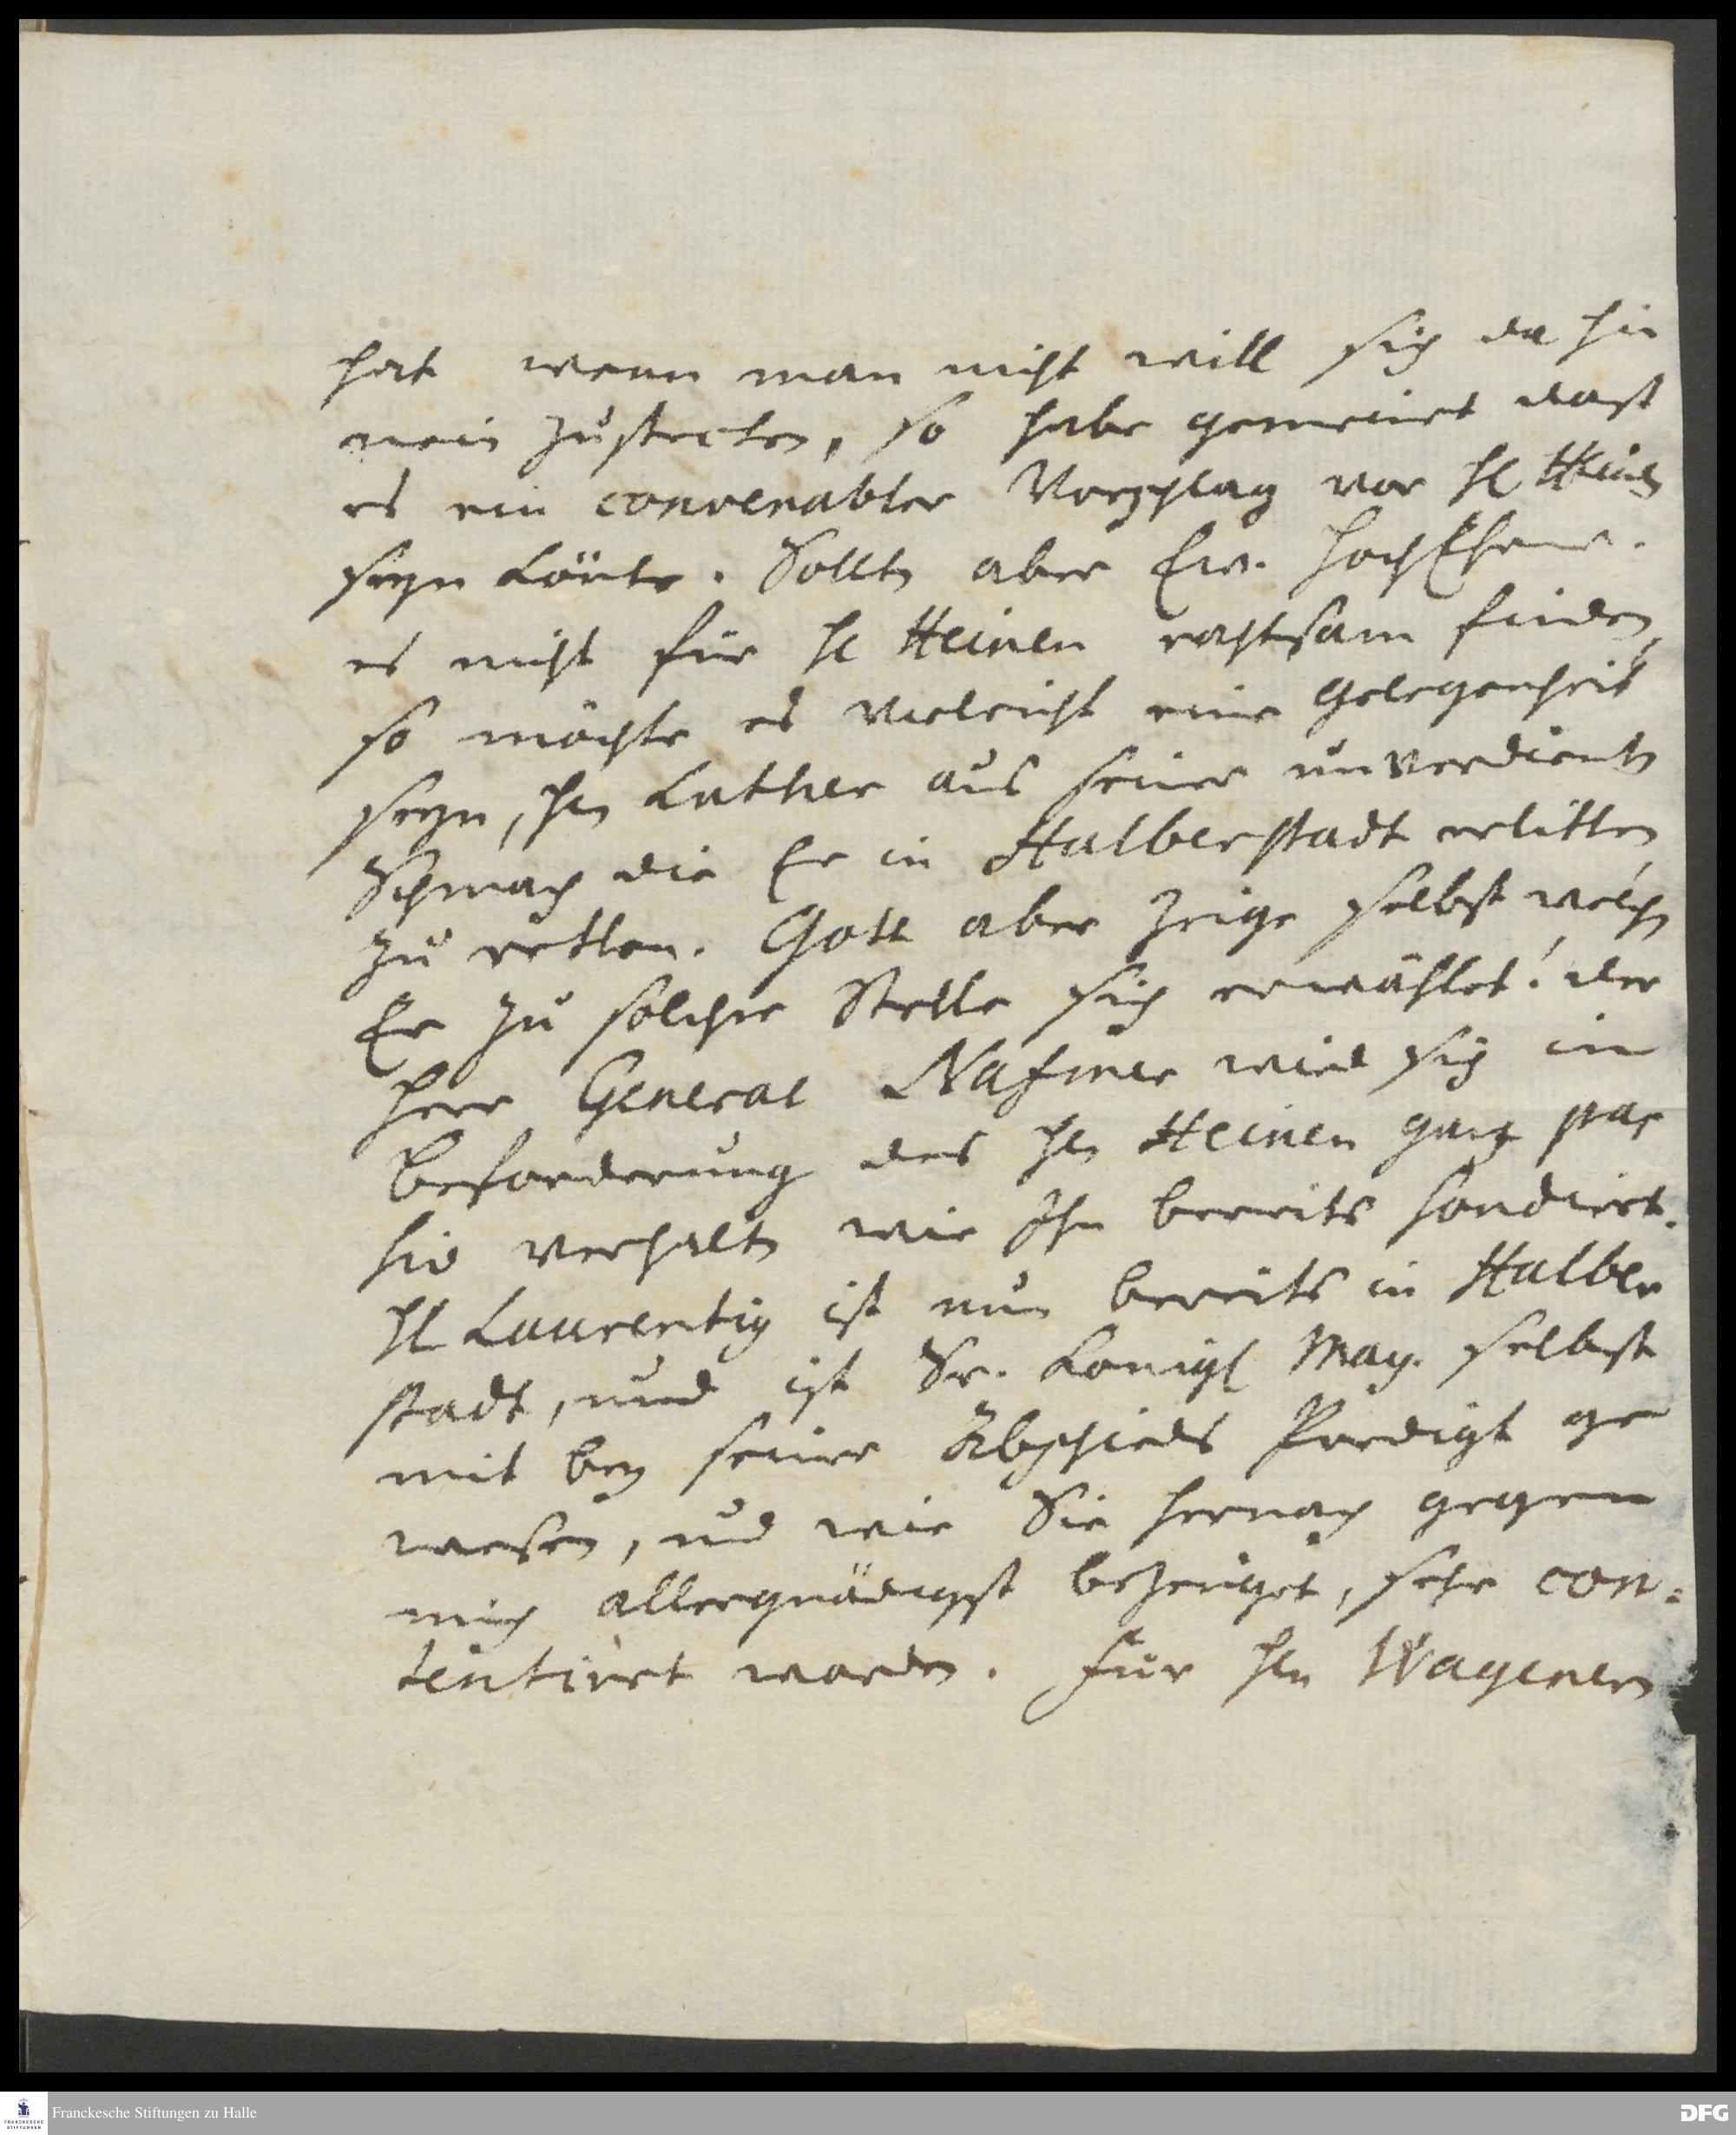 hat wenn man nicht will sich da hin
nein zustecken, so habe gemeinet dasß
es ein convenabler Vorschlag vor H Heinen
seyn könte. Sollten aber Ew. HochEhrw.
es nicht für H Heinen rahtsam finden,
so möchte es vieleicht eine gelegenheit
seyn, Hn Luther aus seiner unverdienten
Schmach die Er in Halberstadt erlitten,
zu retten. Gott aber zeige selbst welchen
Er zu solcher Stelle sich erwählet! der
Herr General Nazmer wird sich in
beforderung des Hn Heinen gantz pas
siv verhalten wie Ihn bereits sondiert.
H Laurentius ist nun bereits in Halber
stadt, und ist Sr. Königl May. selbst
mit bey seiner Abschieds Predigt ge
wesen, und wie Sie hernach gegen
mich allergnädigst bezeuget, sehr con:
tentirt worden. Für Hn Wagenern
Franckesche Stiftungen zu Halle
DFG